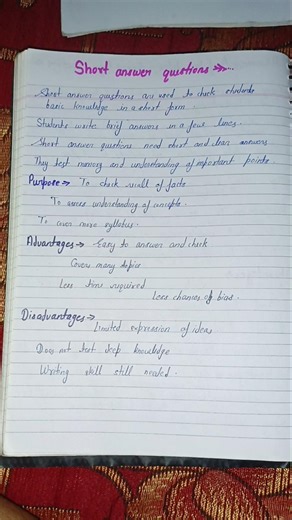 Short answer questions
Short answer questions are used to check students
basic knowledge in a short form.
Students write brief answers in a few lines.
Short answer questions need short and clear answers
They test memory and understanding of important points
Purpose → To check recall of facts
To assess understanding of concepts.
To cover more syllabus.
Advantages → Easy to answer and check
Covers many topics
Less time required
Less chances of bias.
Disadvantages →
Limited expression of ideas
Does not test deep knowledge
Writing skill still needed.